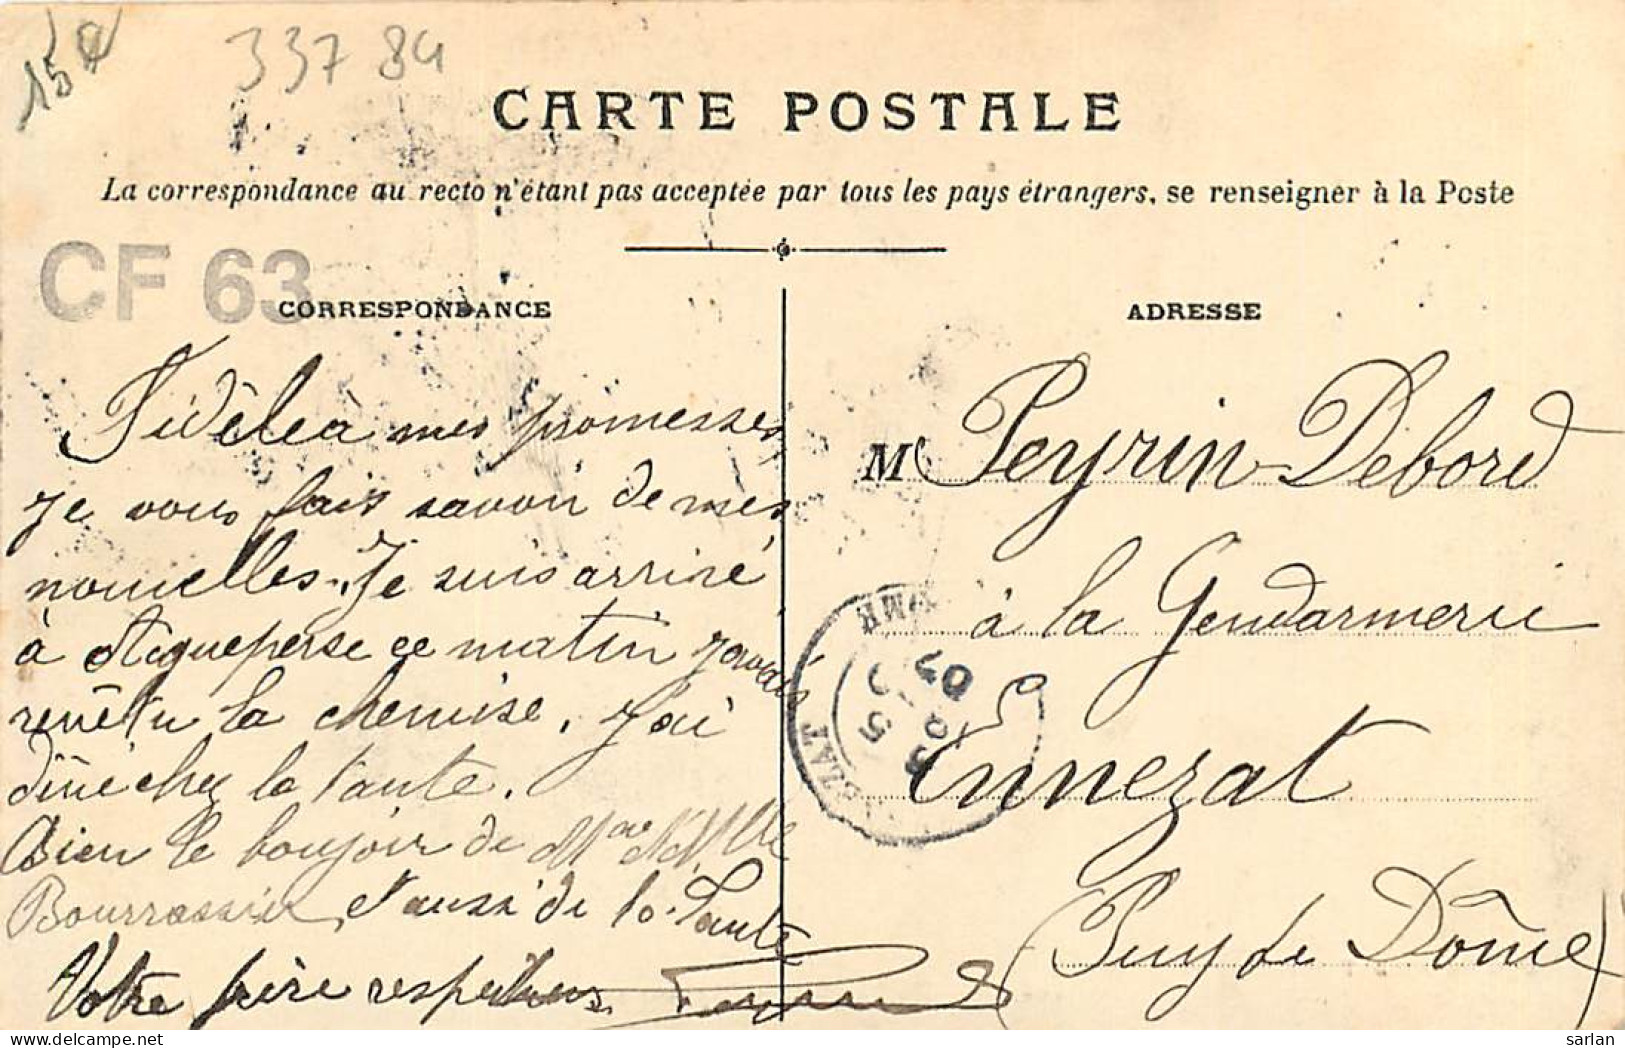 15 €
337 84
CARTE POSTALE
La correspondance au recto n'étant pas acceptée par tous les pays étrangers, se renseigner à la Poste
CF 63
CORRESPONDANCE
Fidèle à mes promesses
je vous fais savoir de mes
nouvelles. Je suis arrivé
à Aigueperse ce matin j'avais
revêtu la chemise. J'ai
dîné chez la tante.
Bien le boujoir de Mme & Mlle
Bourrassier, & aussi de la Tante
Votre frère respectueux
ADRESSE
M Peyrin-Debord
à la Gendarmerie
Ennezat
(Puy de Dôme)
sarlan